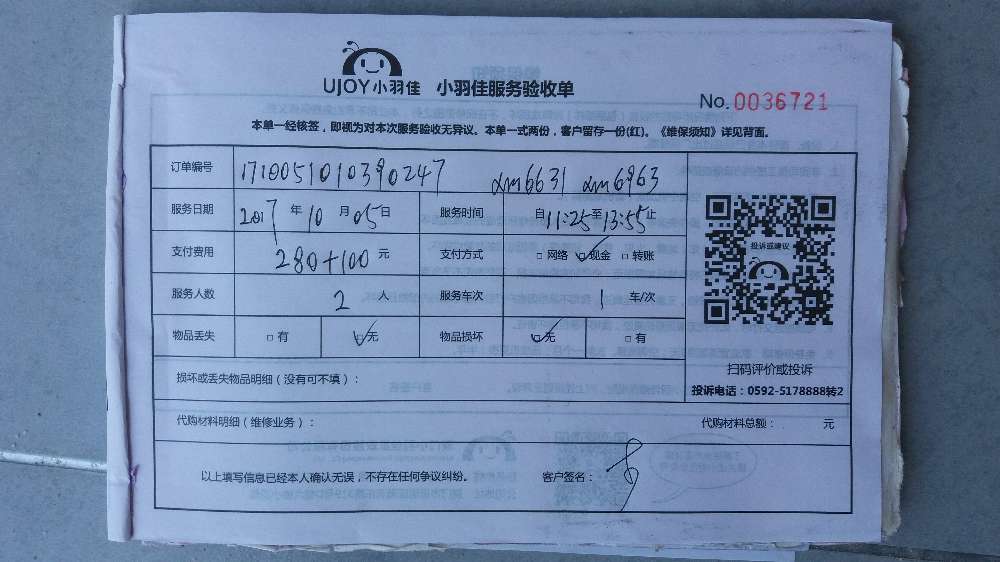 UJOY小羽佳 小羽佳服务验收单
No. 0036721
本单一经核签，即视为对本次服务验收无异议。本单一式两份，客户留存一份(红)。《维保须知》详见背面。
订单编号 171005101039 0247 xm6631 xm6963
服务日期 2017 年 10 月 05 日 服务时间 自 11:25 至 13:55 止
支付费用 280+100 元 支付方式 □ 网络 ☑ 现金 □ 转账
服务人数 2 人 服务车次 1 车/次
物品丢失 □ 有 ☑ 无 物品损坏 ☑ 无 □ 有
投诉或建议
扫码评价或投诉
投诉电话：0592-5178888转2
损坏或丢失物品明细（没有可不填）：
代购材料明细（维修业务）： 代购材料总额： 元
以上填写信息已经本人确认无误，不存在任何争议纠纷。 客户签名：